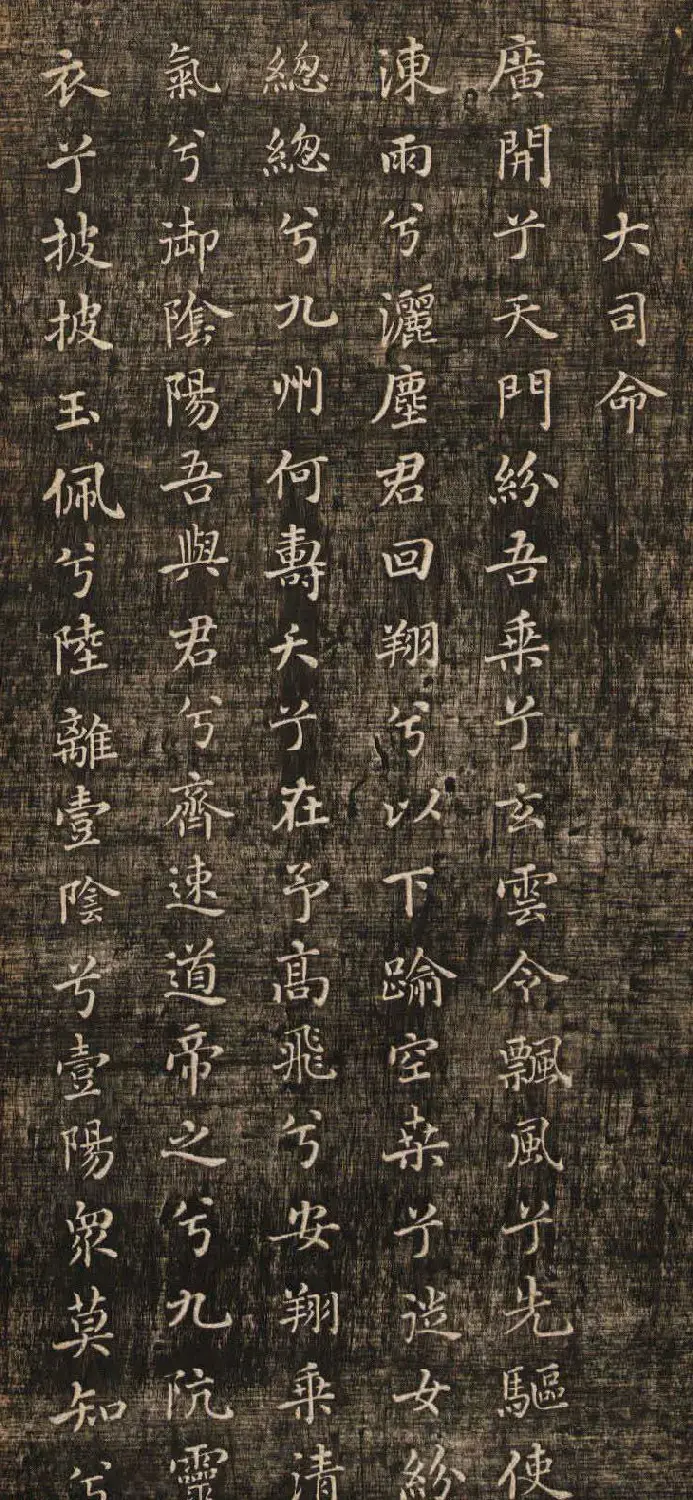 大司命
廣開兮天門紛吾乘兮玄雲令飄風兮先驅使
涷雨兮灑塵君回翔兮以下踰空桒兮從女紛
緫緫兮九州何壽夭兮在予高飛兮安翔乘清
氣兮御陰陽吾與君兮齊速道帝之兮九阬靈
衣兮披披玉佩兮陸離壹陰兮壹陽衆莫知兮